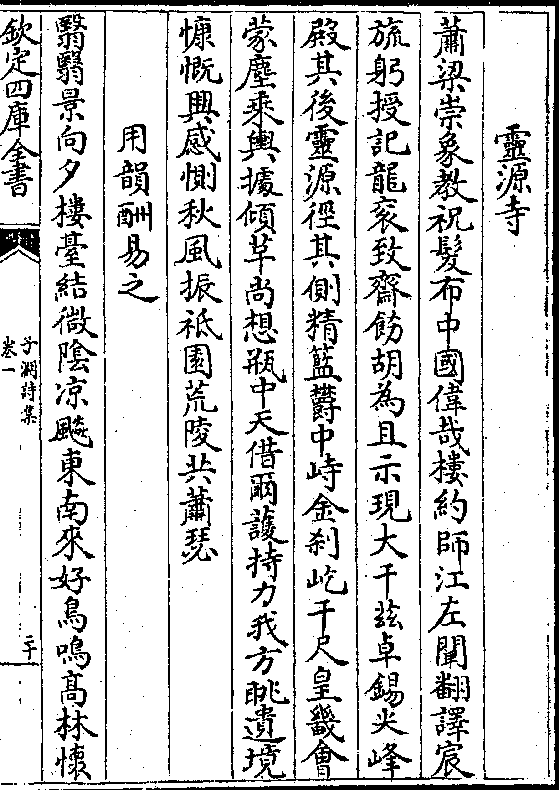 靈源寺
蕭梁崇象教祝髮布中國偉哉樓約師江左闡翻譯宸
旒躬授記龍衮致齋飭胡為且示現大千兹卓錫尖峰
殿其後靈源徑其側精籃欝中峙金刹屹千尺皇畿會
蒙塵乘輿據傾草尚想瓶中天借爾護持力我方眺遺境
慷慨興感惻秋風振祗園荒陵共蕭瑟
用韻酬易之
翳翳景向夕樓臺結微陰凉飈東南來好鳥鳴髙林懷
欽定四庫全書
子淵詩集
卷一
二十